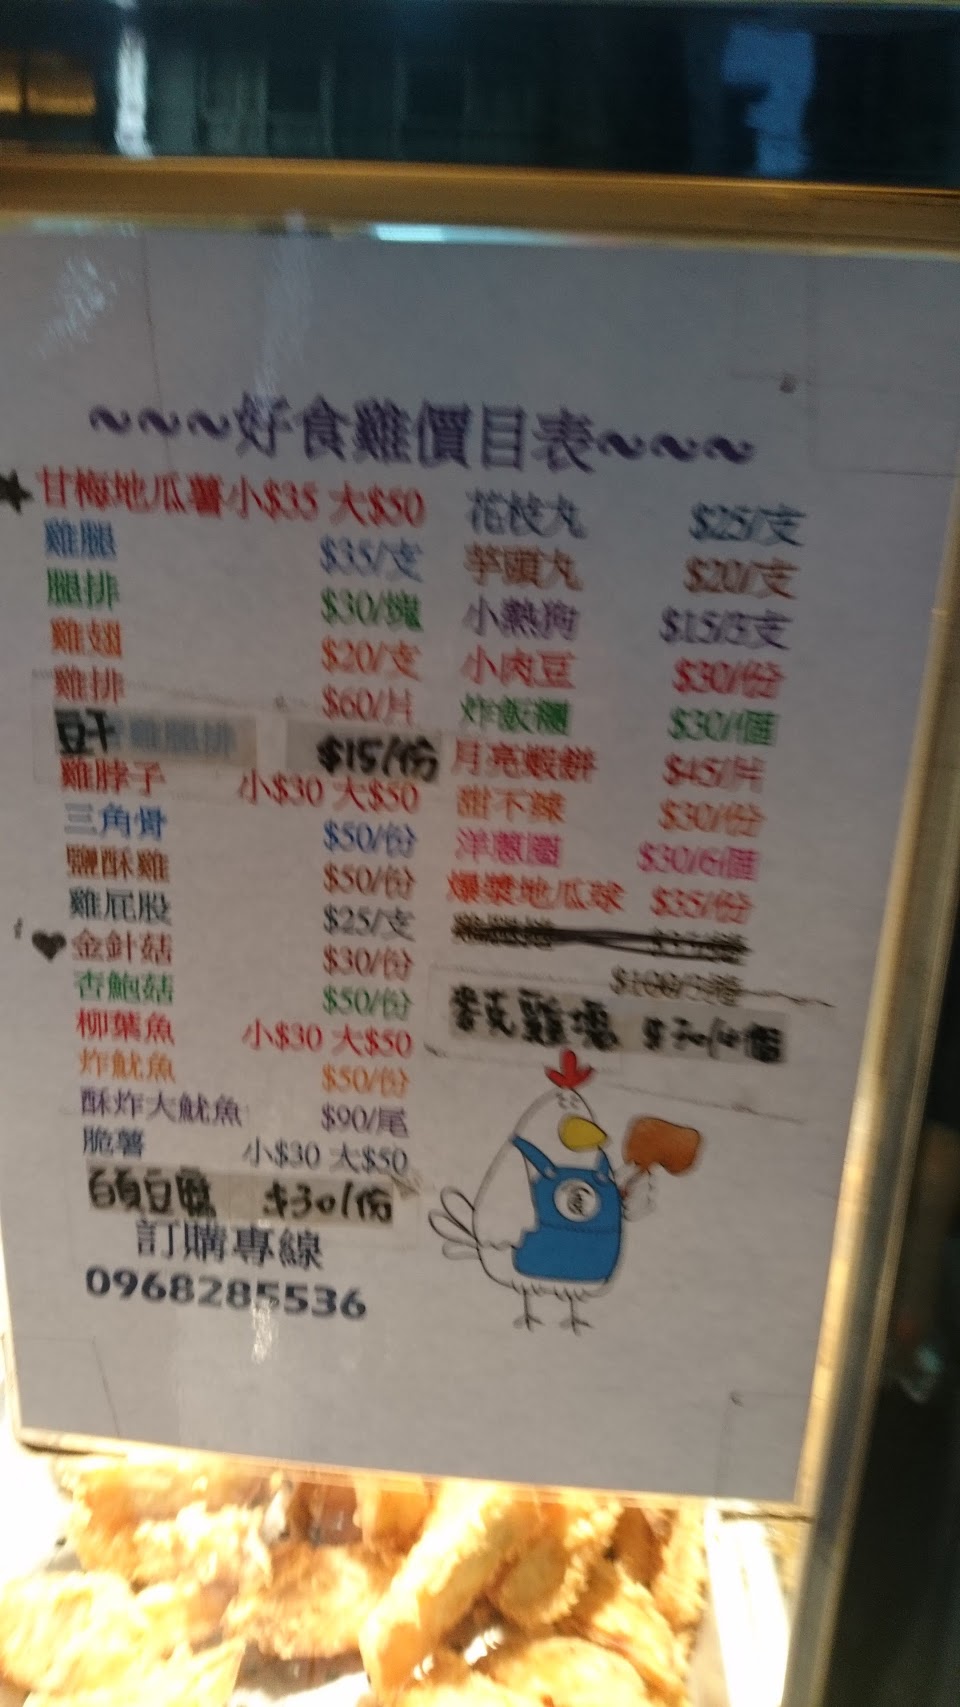 ~~~好食雞價目表~~~
甘梅地瓜薯小$35 大$50
雞腿 $35/支
腿排 $30/塊
雞翅 $20/支
雞排 $60/片
豆干 雞腿排 $15/份
雞脖子 小$30 大$50
三角骨 $50/份
鹽酥雞 $50/份
雞屁股 $25/支
金針菇 $30/份
杏鮑菇 $50/份
柳葉魚 小$30 大$50
炸魷魚 $50/份
酥炸大魷魚 $90/尾
脆薯 小$30 大$50
百頁豆腐 $30/份
訂購專線
0968285536
花枝丸 $25/支
芋頭丸 $20/支
小熱狗 $15/5支
小肉豆 $30/份
炸飯糰 $30/個
月亮蝦餅 $45/片
甜不辣 $30/份
洋蔥圈 $30/6個
爆漿地瓜球 $35/份
$100/3捲
麥克雞塊 $30/10個
食